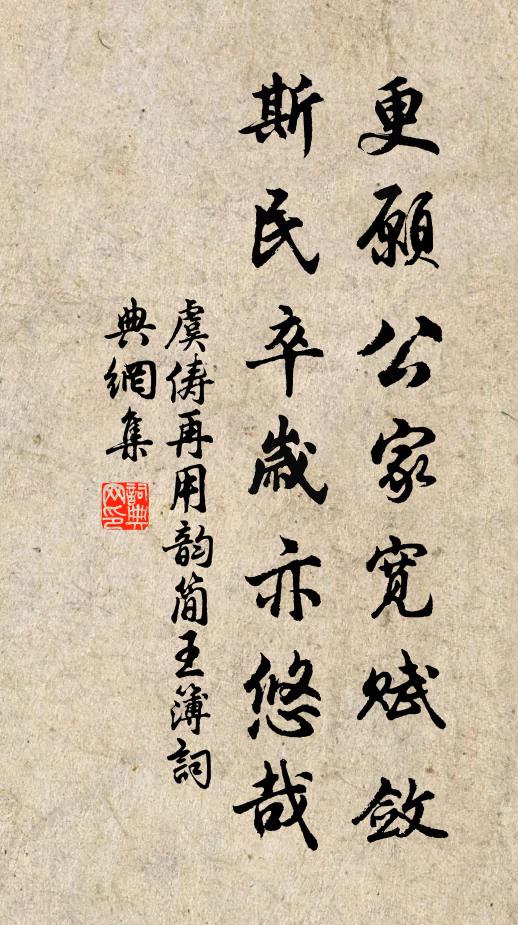 更願公家寬賦斂
斯民卒歲亦悠哉
虞儔再用韵簡王簿詞
典網集
詞典
网印